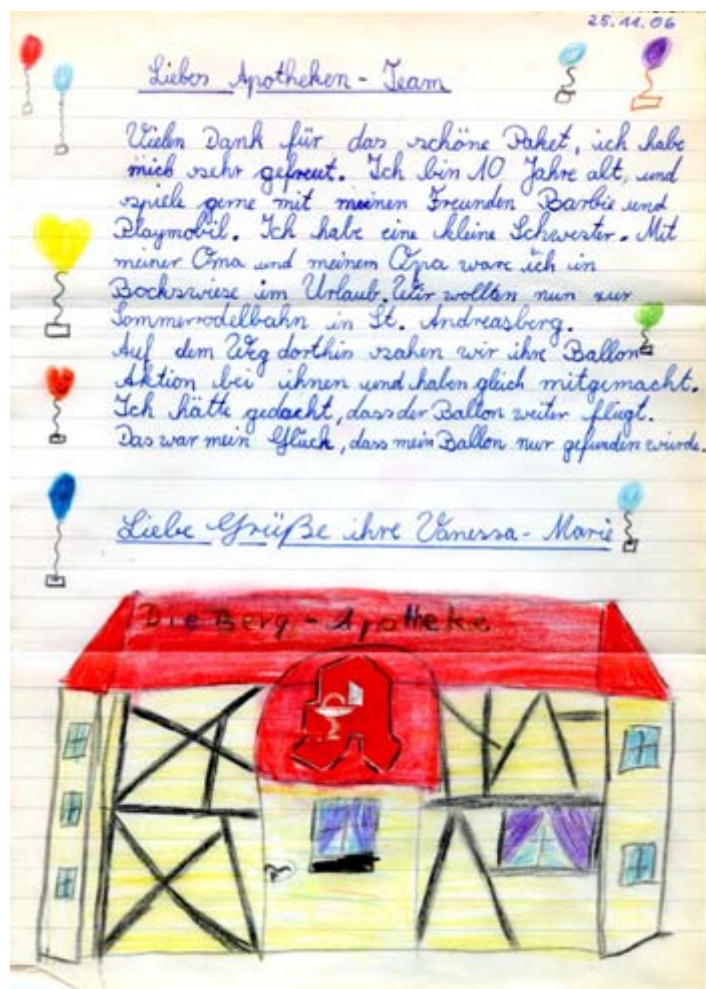 25.11.06
Liebes Apotheken-Team
Vielen Dank für das schöne Paket, ich habe
mich sehr gefreut. Ich bin 10 Jahre alt, und
spiele gerne mit meinen Freunden Barbie und
Playmobil. Ich habe eine kleine Schwester. Mit
meiner Oma und meinem Opa ware ich in
Bockswiese im Urlaub. Wir wollten nun zur
Sommerrodelbahn in St. Andreasberg.
Auf dem Weg dorthin sahen wir ihre Ballon
Aktion bei ihnen und haben gleich mitgemacht.
Ich hätte gedacht, dass der Ballon weiter fliegt.
Das war mein Glück, dass mein Ballon nur gefunden wurde.
Liebe Grüße ihre Vanessa-Marie
Die Berg-Apotheke